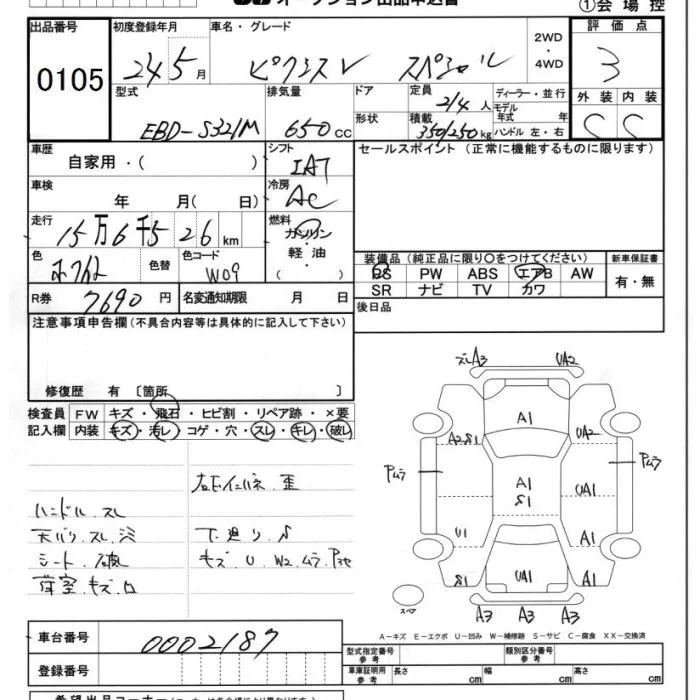 オークション出品申込書
①会場控
出品番号 初度登録年月 車名・グレード 評価点
0105 24 5月 ピクシスV スペシャル 2WD・4WD 3
型式 排気量 ドア 定員 2/4人 ディーラー・並行 外装 内装
EBD-S321M 650cc 形状 積載 350/250kg モデル年式 年 ハンドル 左・右 C C
車歴 シフト セールスポイント(正常に機能するものに限ります)
自家用・( ) IAT
車検 冷房
年 月( 日) AC
走行 燃料
15万6千526km ガソリン・軽油
( )
色 色替 色コード W09
装備品(純正品に限り○をつけてください) 新車保証書
PS PW ABS エアB AW 有・無
SR ナビ TV カワ
R券 7690円 名変通知期限 月 日 後日品
注意事項申告欄(不具合内容等は具体的に記入して下さい)
修復歴 有〔箇所 〕
検査員 FW キズ・飛石・ヒビ割・リペア跡・×要
記入欄 内装 キズ・汚レ・コゲ・穴・スレ・キレ・破レ
ハンドル.スレ
シート.破
荷室.キズ.
下廻り.S
キズ.U.W2.ムラ.
ズレA3 UA2
A1
A2.S1 UA2
Pムラ Pムラ
A1
S1
UA1
U1 A1
S1 UA1 A1
スペア
A3 A3 A3
A-キズ E-エクボ U-凹み W-補修跡 S-サビ C-腐食 XX-交換済
車台番号 0002187
登録番号
型式指定番号 参考 類別区分番号 参考
車庫証明用 参考 長さ cm 幅 cm 高さ cm